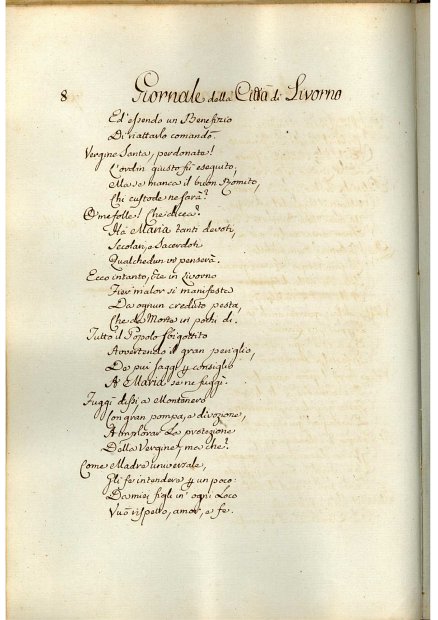 8 Giornale della Città di Livorno
Ed' essendo un Benefizio
Di riattarlo comandò.
Vergine Santa, perdonate!
L'ordin giusto fù eseguito,
Ma se manca il buon Romito,
Chi custode ne sarà?
O me folle! Che dicea?
Hà Maria tanti devoti,
Secolari, e Sacerdoti
Qualchedun vi penserà.
Ecco intanto, che in Livorno
Fier malor si manifesta
Da ognun creduto pesta,
Che dà Morte in pochi dì.
Tutto il Popolo sbigottito
Avvertendo il gran periglio,
De più saggi per consiglio
A' Maria se ne fuggì.
Fuggì dissi a Montenero
Con gran pompa, e divozione,
A implorar la protezione
Della Vergine; ma che?
Come Madre universale,
Gli fe intendere per un poco:
Da miei figli in' ogni loco
Vuò rispetto, amor, e fe.